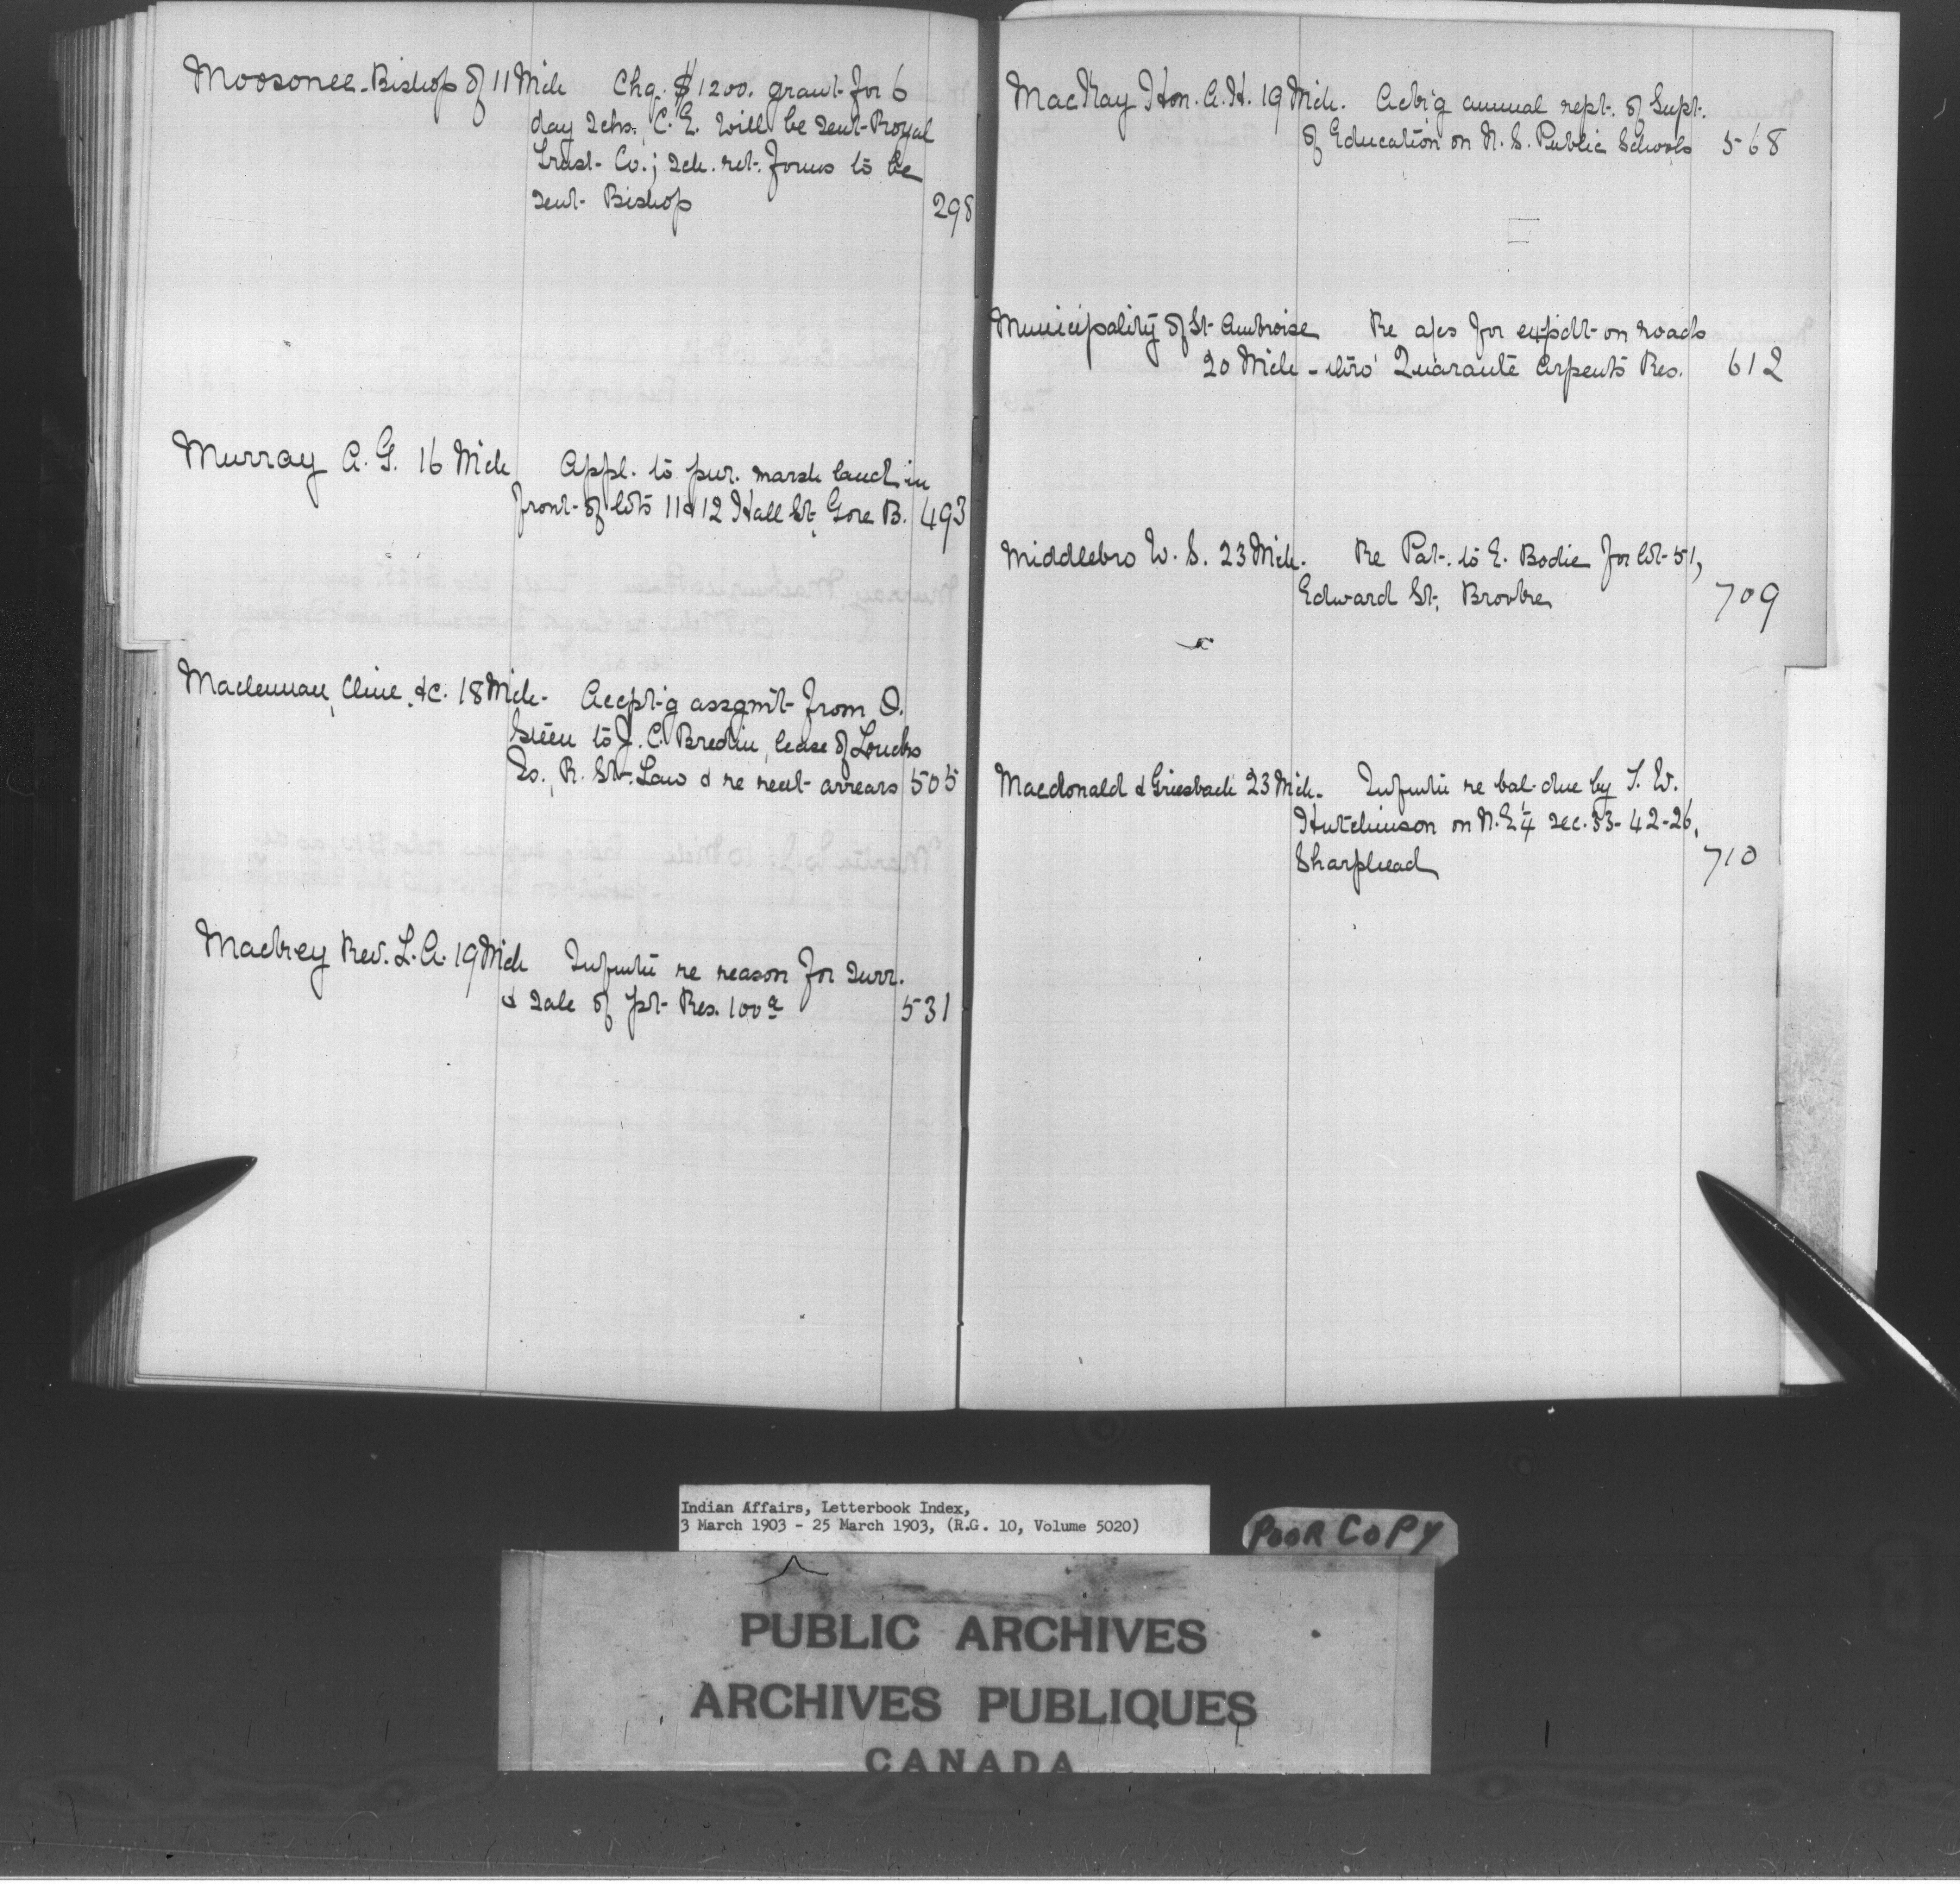 Moosonee Bishop of 11 Mch Chq. $1200. grant for 6
day schs. C. E. will be sent Royal
Trust Co.; sch. ret. forms to be
sent Bishop 298
Murray A. G. 16 Mch Appl. to pur. marsh land in
front of lots 11 & 12 Hall St. Gore B. 493
Maclennan, Cline &c. 18 Mch. Accpt'g assgm't from O.
Steen to J. C. Bredin, lease of Loucks
Is., R. St. Law & re rent arrears 505
Mackey Rev. L. A. 19 Mch re reason for surr.
& sale of pt. Res. 100 a 531
MacKay Hon. A. H. 19 Mch. Ack'g annual rept. of Supt.
of Education on N. S. Public Schools 568
Municipality of St. Ambroise Re a/cs for expdt. on roads
20 Mch - thro' Quarante Arpents Res. 612
Middlebro W. S. 23 Mch. Re Pat. to E. Bodie for lot 51,
Edward St., 709
Macdonald & Griesbach 23 Mch. re bal. due by T. W.
Hutchinson on N.E¼ sec. 33-42-26,
Sharphead 710
Indian Affairs, Letterbook Index,
3 March 1903 - 25 March 1903, (R.G. 10, Volume 5020)
POOR COPY
PUBLIC ARCHIVES
ARCHIVES PUBLIQUES
CANADA